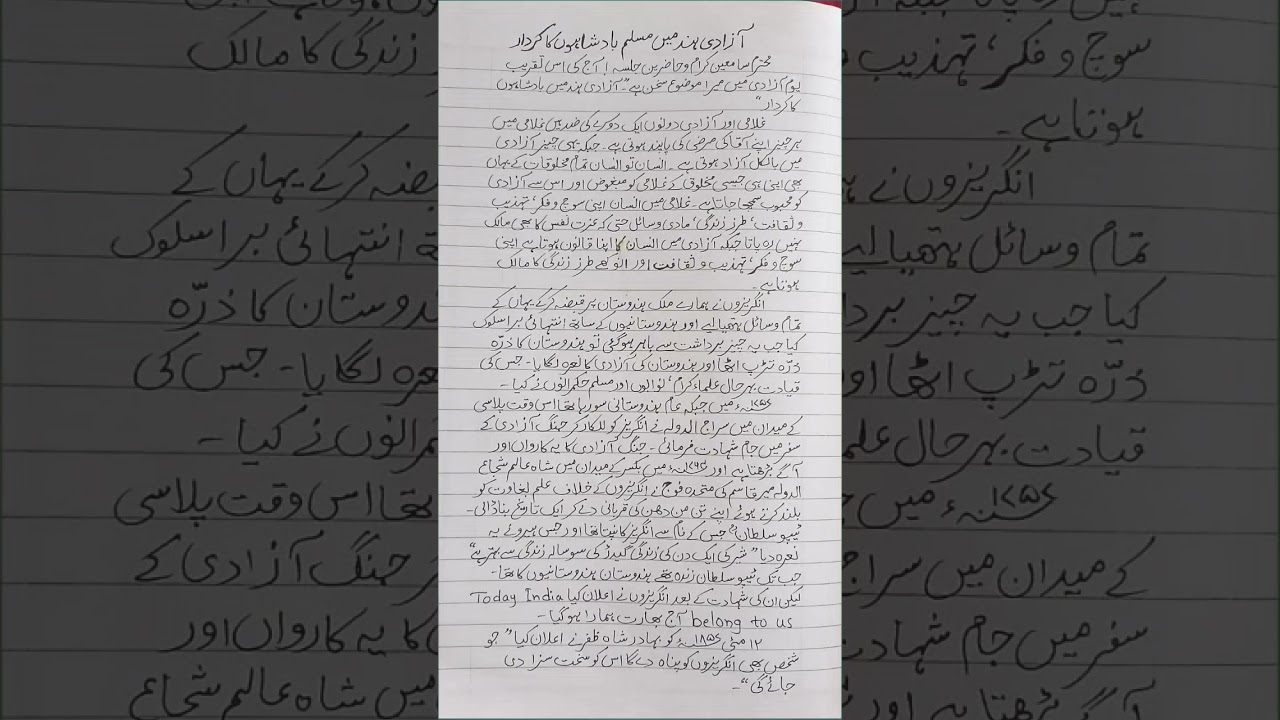 آزادی ہند میں مسلم بادشاہوں کا کردار
محترم سامعین کرام و حاضرین جلسہ! آج کی اس تقریب
یوم آزادی میں میرا موضوع سخن ہے "آزادی ہند میں بادشاہوں
کا کردار"
غلامی اور آزادی دونوں ایک دوسرے کی ضد ہیں غلامی میں
ہر چیز اپنے آقا کی مرضی کی پابند ہوتی ہے۔ جبکہ یہی چیز آزادی
میں بالکل آزاد ہوتی ہے۔ انسان تو انسان تمام مخلوقات کے یہاں
بھی اپنی ہی جیسی مخلوق کے غلامی کو مبغوض اور اس سے آزادی
کو محبوب سمجھا جاتا ہے۔ غلامی میں انسان اپنی سوچ و فکر، تہذیب
و ثقافت، طرز زندگی، مادی وسائل حتی کہ عزت نفس کا بھی مالک
نہیں رہ پاتا جبکہ آزادی میں انسان کا اپنا قانون ہوتا ہے اپنی
سوچ و فکر، تہذیب و ثقافت اور انوکھے طرز زندگی کا مالک
ہوتا ہے۔
انگریزوں نے ہمارے ملک ہندوستان پر قبضہ کر کے یہاں کے
تمام وسائل ہتھیا لیے اور ہندوستانیوں کے ساتھ انتہائی برا سلوک
کیا جب یہ چیز برداشت سے باہر ہو گئی تو ہندوستان کا ذرّہ
ذرّہ تڑپ اٹھا اور ہندوستان کی آزادی کا نعرہ لگایا۔ جس کی
قیادت بہرحال علماء کرام، نوابوں اور مسلم حکمرانوں نے کیا۔
۱۷۵۷ء میں جبکہ عام ہندوستانی سو رہا تھا اس وقت پلاسی
کے میدان میں سراج الدولہ نے انگریز کو للکار کر جنگ آزادی کے
سفر میں جام شہادت فرمائی۔ جنگ آزادی کا یہ کارواں اور
آگے بڑھتا ہے اور ۱۷۶۴ء میں بکسر کے میدان میں شاہ عالم شجاع
الدولہ میر قاسم کی متحدہ فوج نے انگریزوں کے خلاف علم بغاوت کو
بلند کرتے ہوئے اپنے تن من دھن کی قربانی دے کر ایک تاریخ بنا ڈالی۔
ٹیپو سلطان جس کے نام سے انگریز کانپتا تھا اور جس ہیرو نے یہ
نعرہ دیا "شیر کی ایک دن کی زندگی گیدڑ کی سو سالہ زندگی سے بہتر ہے"
جب تک ٹیپو سلطان زندہ تھے ہندوستان ہندوستانیوں کا تھا۔
لیکن ان کی شہادت کے بعد انگریزوں نے اعلان کیا Today India
belong to us آج بھارت ہمارا ہو گیا۔
۱۲ مئی ۱۸۵۷ء کو بہادر شاہ ظفر نے اعلان کیا "جو
شخص بھی انگریزوں کو پناہ دے گا اس کو سخت سزا دی
جائے گی"۔